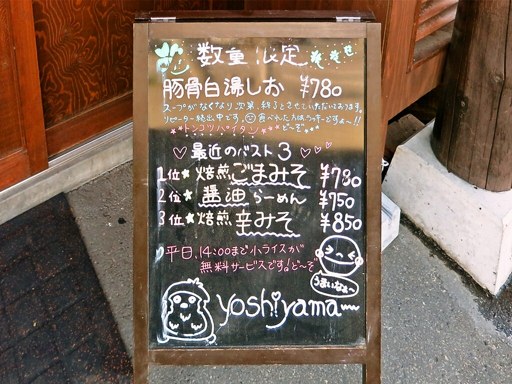 数量限定
豚骨白湯しお ¥780
スープがなくなり次第、終了とさせていただいております。
リピーター続出中です。食べれた方はラッキーですよ〜!!
トンコツパイタン ど〜ぞ
♡最近のベスト3♡♡♡
1位★焙煎ごまみそ ¥780
2位★醤油らーめん ¥750
3位★焙煎辛みそ ¥850
平日、14:00まで小ライスが
無料サービスです!ど〜ぞ
うまいなぁ〜
yoshiyama